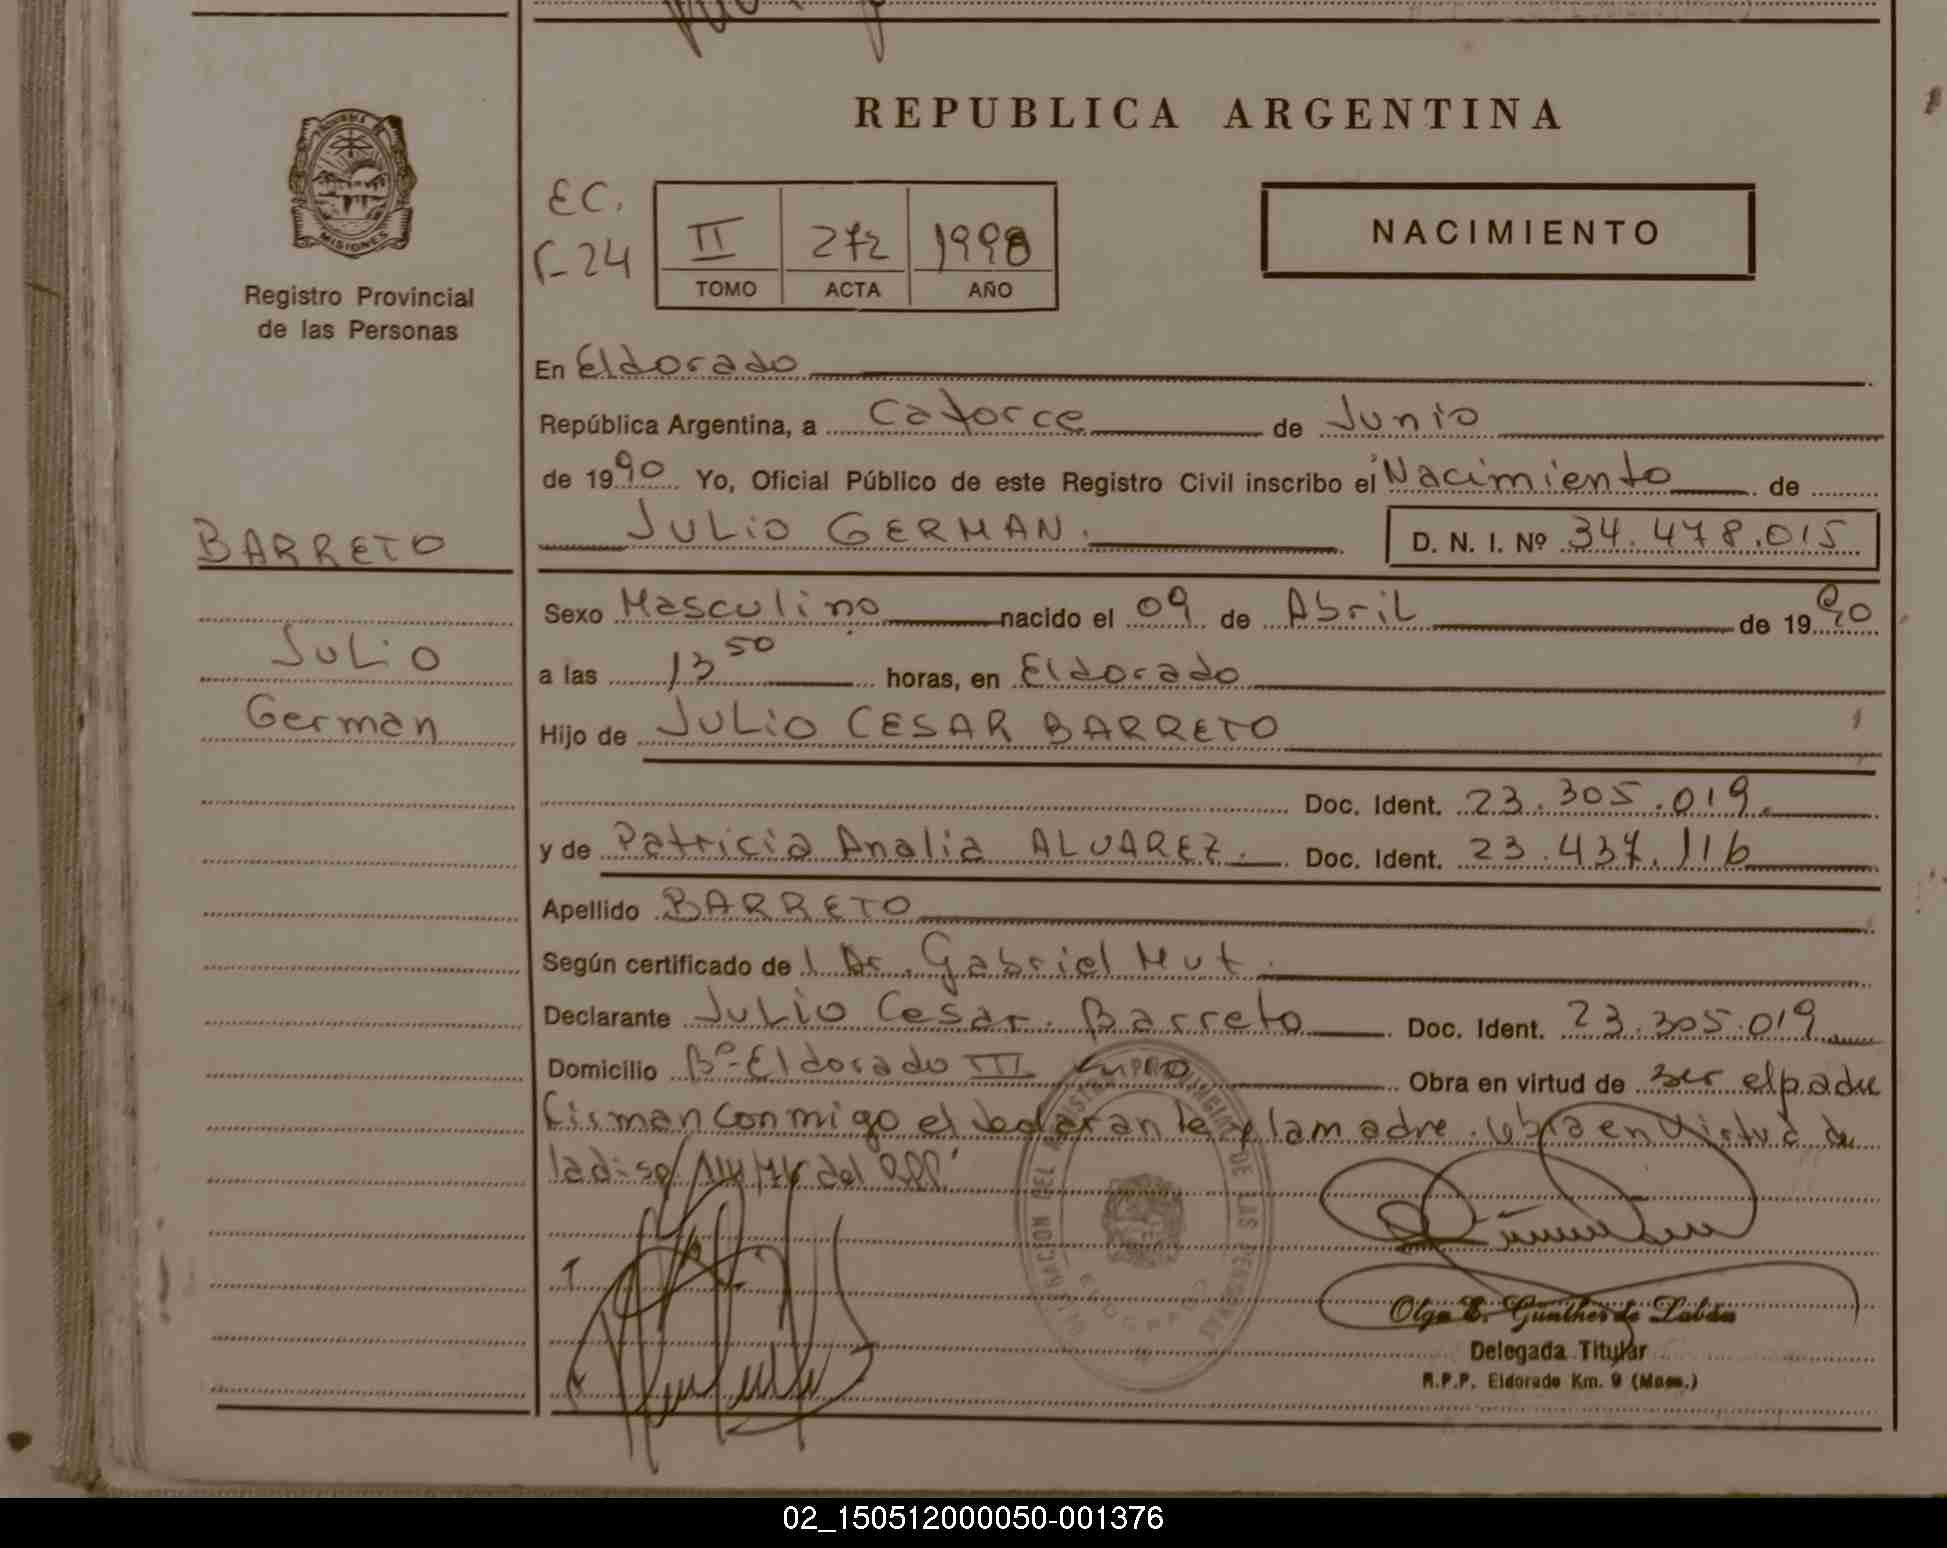 REPUBLICA ARGENTINA
MISIONES
Registro Provincial
de las Personas
EC.
F-24
II 272 1990
TOMO ACTA AÑO
NACIMIENTO
En Eldorado
República Argentina, a Catorce de Junio
de 1990 Yo, Oficial Público de este Registro Civil inscribo el Nacimiento de
BARRETO
Julio
German
JULIO GERMAN. D. N. I. Nº 34.478.015
Sexo Masculino nacido el 09 de Abril de 1990
a las 13 50 horas, en Eldorado
Hijo de JULIO CESAR BARRETO
Doc. Ident. 23.305.019.
y de Patricia Analia ALVAREZ. Doc. Ident. 23.437.116
Apellido BARRETO
Según certificado de l Dr. Gabriel Mut.
Declarante Julio Cesar. Barreto Doc. Ident. 23.305.019
Domicilio Bº-Eldorado III Obra en virtud de ser el padre
firman conmigo el declarante y la madre. obra en virtud de
la disp del
Olga E. Günther de Zabán
Delegada Titular
R.P.P. Eldorado Km. 9 (Mnes.)
02_150512000050-001376